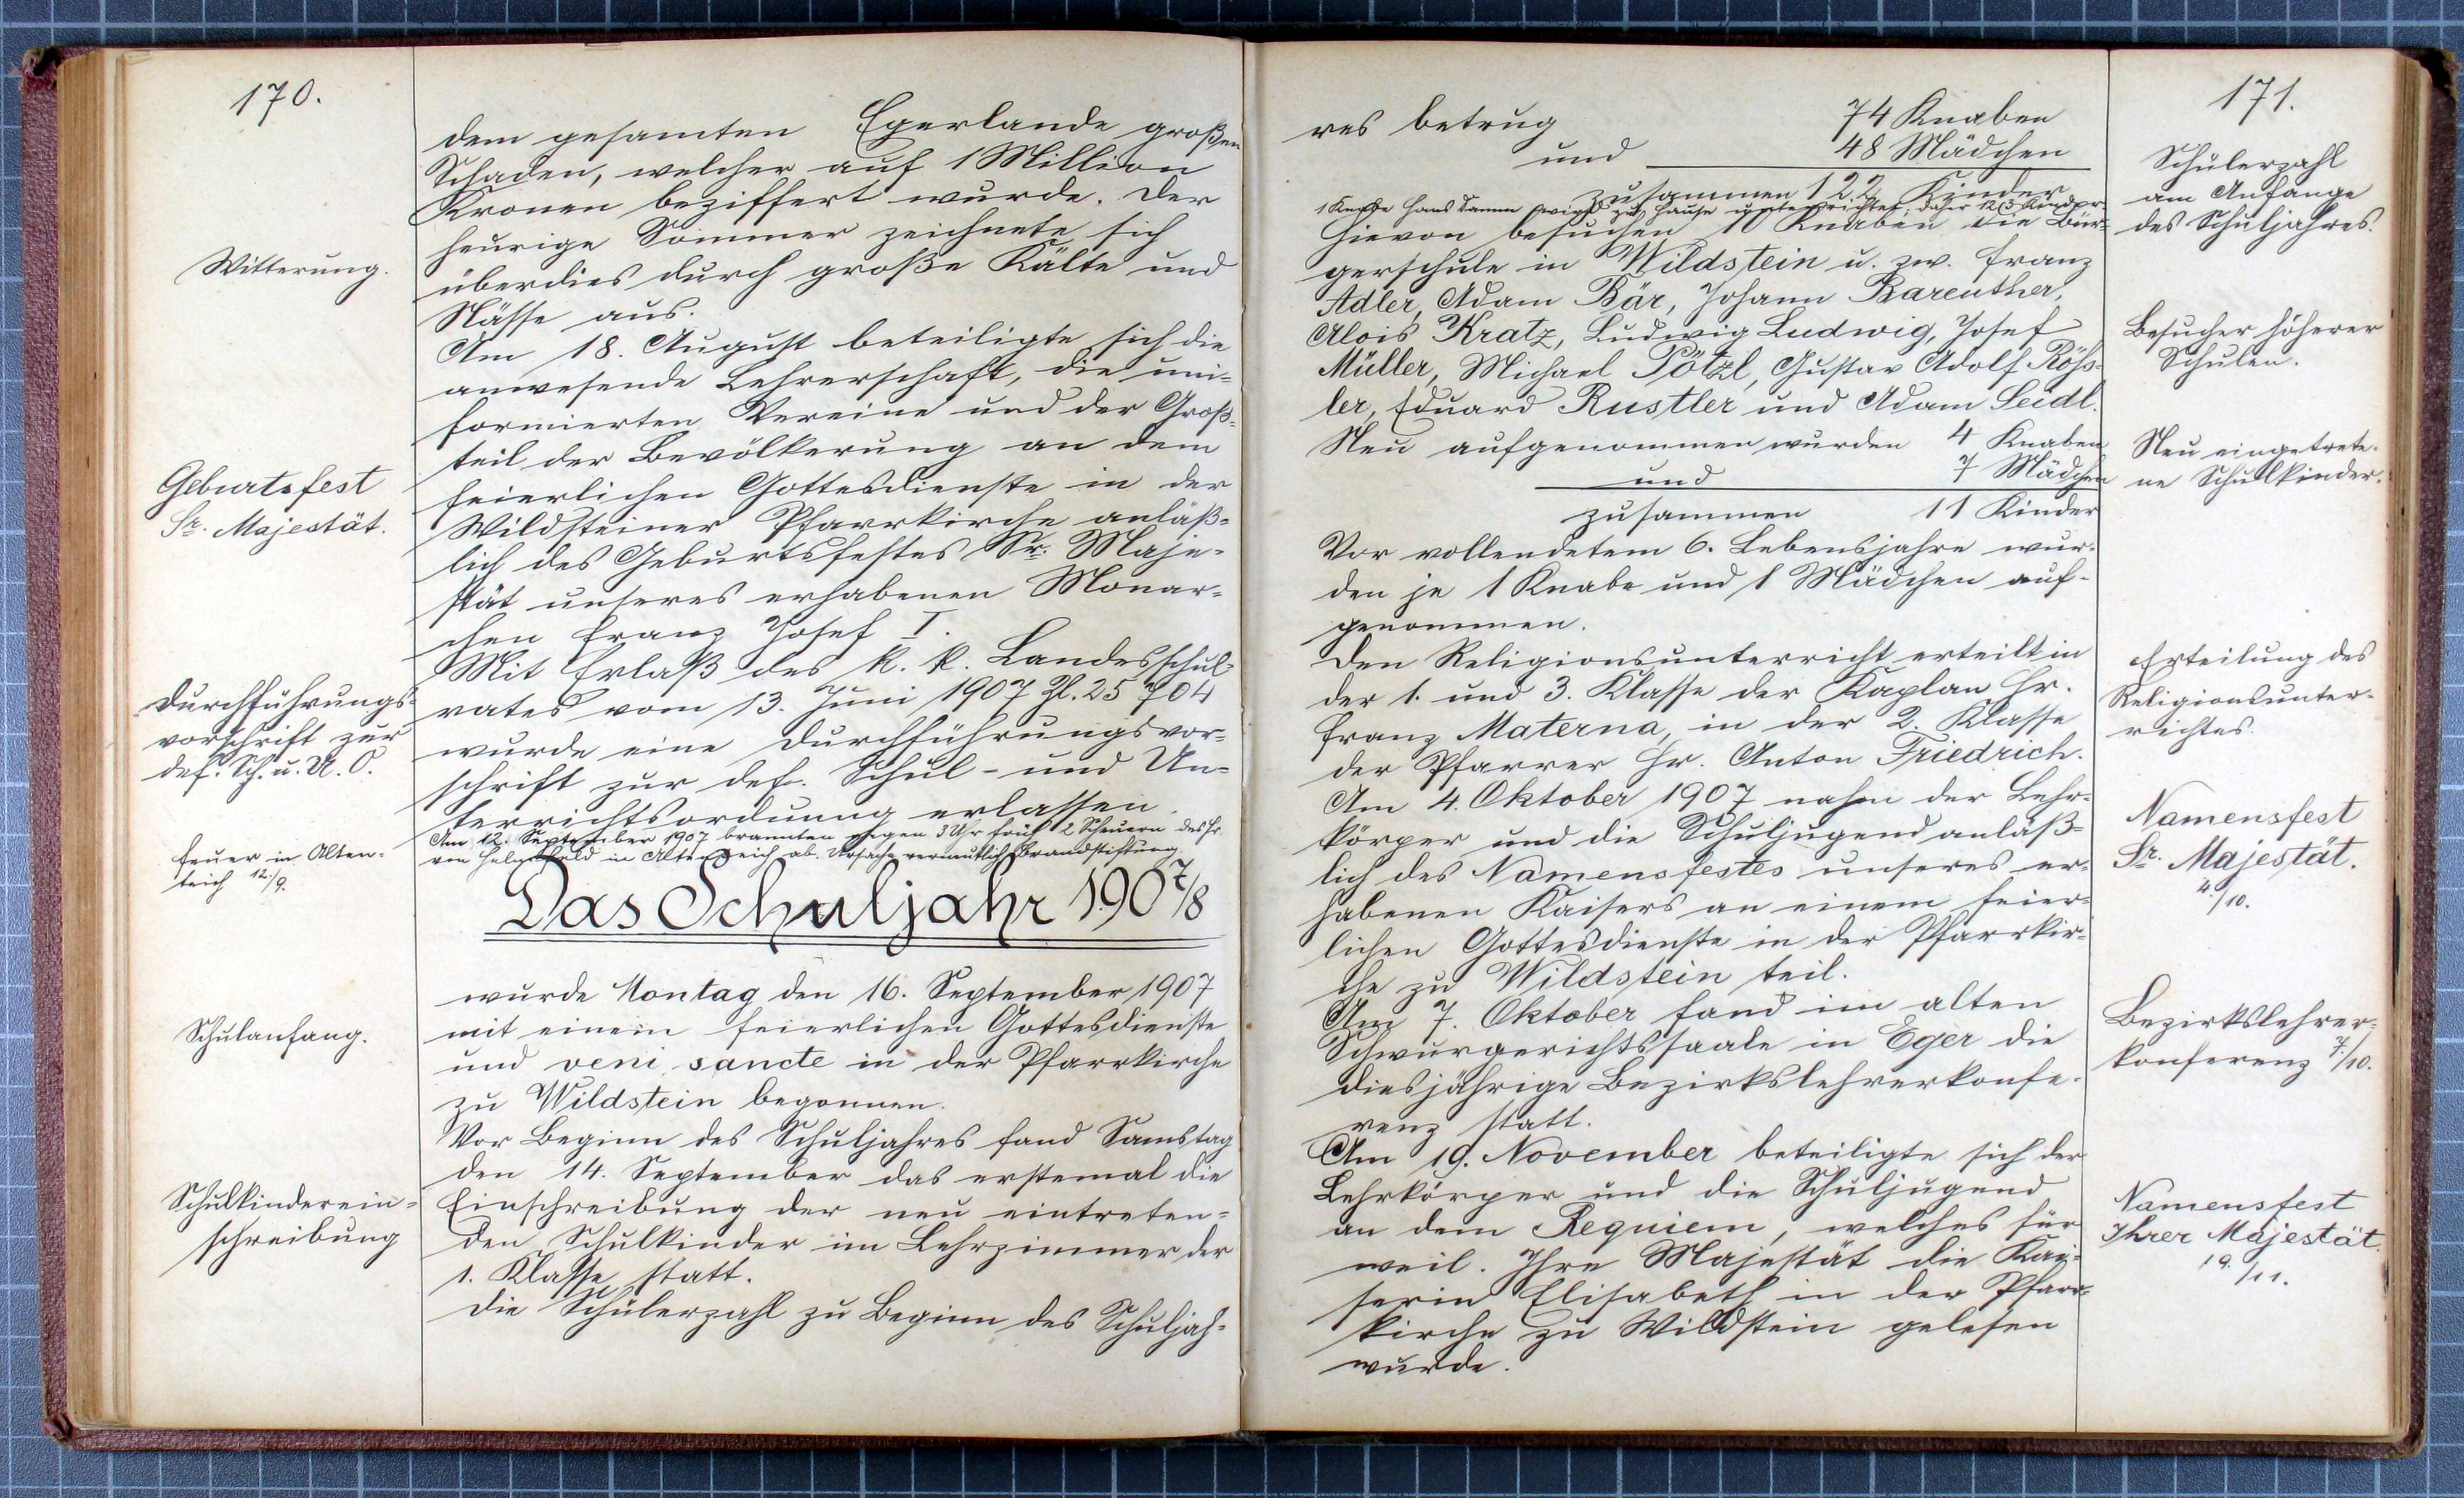 170.
dem gesamten Egerlande großen
Schaden, welcher auf 1 Million
Kronen beziffert wurde. Der
heurige Sommer zeichnete sich
Witterung.
überdies durch große Kälte und
Nässe aus.
Am 18. August beteiligte sich die
anwesende Lehrerschaft, die uni-
formierten Vereine und der Groß-
teil der Bevölkerung an dem
Geburtsfest
Sr. Majestät.
feierlichen Gottesdienste in der
Wildsteiner Pfarrkirche anläß-
lich des Geburtsfestes Sr. Maje-
stät unseres erhabenen Monar-
chen Franz Josef I.
Mit Erlaß des k. k. Landesschul-
Durchführungs-
vorschrift zur
def. Sch. u. U. O.
rates vom 13. Juni 1907 Zl. 25704
wurde eine Durchführungsvor-
schrift zur def. Schul- und Un-
terrichtsordnung erlassen.
Feuer in Alten-
teich 12./9.
Am 12. September 1907 brannten gegen 3 Uhr früh 2 Scheuern des Hr.
von Helmfeld in Altenteich ab. Ursache vermutlich Brandstiftung.
Das Schuljahr 1907/8
wurde Montag den 16. September 1907
Schulanfang.
mit einem feierlichen Gottesdienste
und veni sancte in der Pfarrkirche
zu Wildstein begonnen.
Vor Beginn des Schuljahres fand Samstag
den 14. September das erstemal die
Schulkinderein-
schreibung
Einschreibung der neu eintreten-
den Schulkinder im Lehrzimmer der
1. Klasse statt.
Die Schülerzahl zu Beginn des Schuljah-
171.
res betrug 74 Knaben
und 48 Mädchen
Schülerzahl
am Anfange
des Schuljahres.
zusammen 122 Kinder
1 Knabe Hans Tamm wird zu Hause unterrichtet, daher 123 Kinder.
Hievon besuchen 10 Knaben die Bür-
gerschule in Wildstein u. zw. Franz
Adler, Adam Bär, Johann Bareuther,
Besucher höherer
Schulen.
Alois Kratz, Ludwig Ludwig, Josef
Müller, Michael Pötzl, Gustav Adolf Röß-
ler, Eduard Rustler und Adam Seidl.
Neu eingetrete-
ne Schulkinder.
Neu aufgenommen wurden 4 Knaben
und 7 Mädchen
zusammen 11 Kinder
Vor vollendetem 6. Lebensjahre wur-
den je 1 Knabe und 1 Mädchen auf-
genommen.
Erteilung des
Religionsunter-
richtes.
Den Religionsunterricht erteilt in
der 1. und 3. Klasse der Kaplan Hr.
Franz Materna, in der 2. Klasse
der Pfarrer Hr. Anton Friedrich.
Namensfest
Sr. Majestät.
4./10.
Am 4. Oktober 1907 nahm der Lehr-
körper und die Schuljugend anläß-
lich des Namensfestes unseres er-
habenen Kaisers an einem feier-
lichen Gottesdienste in der Pfarrkir-
che zu Wildstein teil.
Bezirkslehrer-
konferenz 7./10.
Am 7. Oktober fand im alten
Schwurgerichtssaale in Eger die
diesjährige Bezirkslehrerkonfe-
renz statt.
Namensfest
Ihrer Majestät.
19./11.
Am 19. November beteiligte sich der
Lehrkörper und die Schuljugend
an dem Requiem, welches für
weil. Ihre Majestät die Kai-
serin Elisabeth in der Pfarr-
kirche zu Wildstein gelesen
wurde.